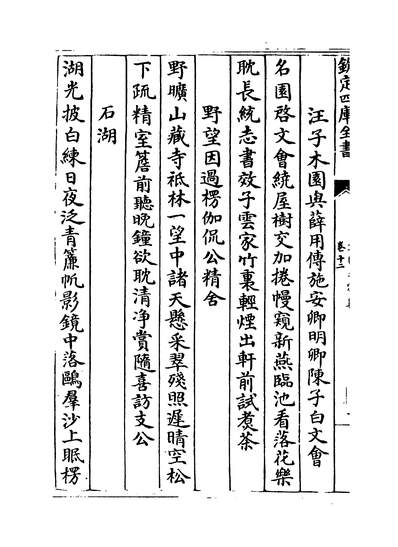 欽定四庫全書
卷十二
汪子木園與薛用傳施安卿明卿陳子白文會
名園啓文會繞屋樹交加捲幔窺新燕臨池看落花樂
耽長統志書效子雲家竹裏輕煙出軒前試煑茶
野望因過楞伽侃公精舍
野曠山藏寺祗林一望中諸天懸采翠殘照遲晴空松
下疏精室簷前聽晚鐘欲耽清净賞隨喜訪支公
石湖
湖光披白練日夜泛青簾帆影鏡中落鷗羣沙上眠楞